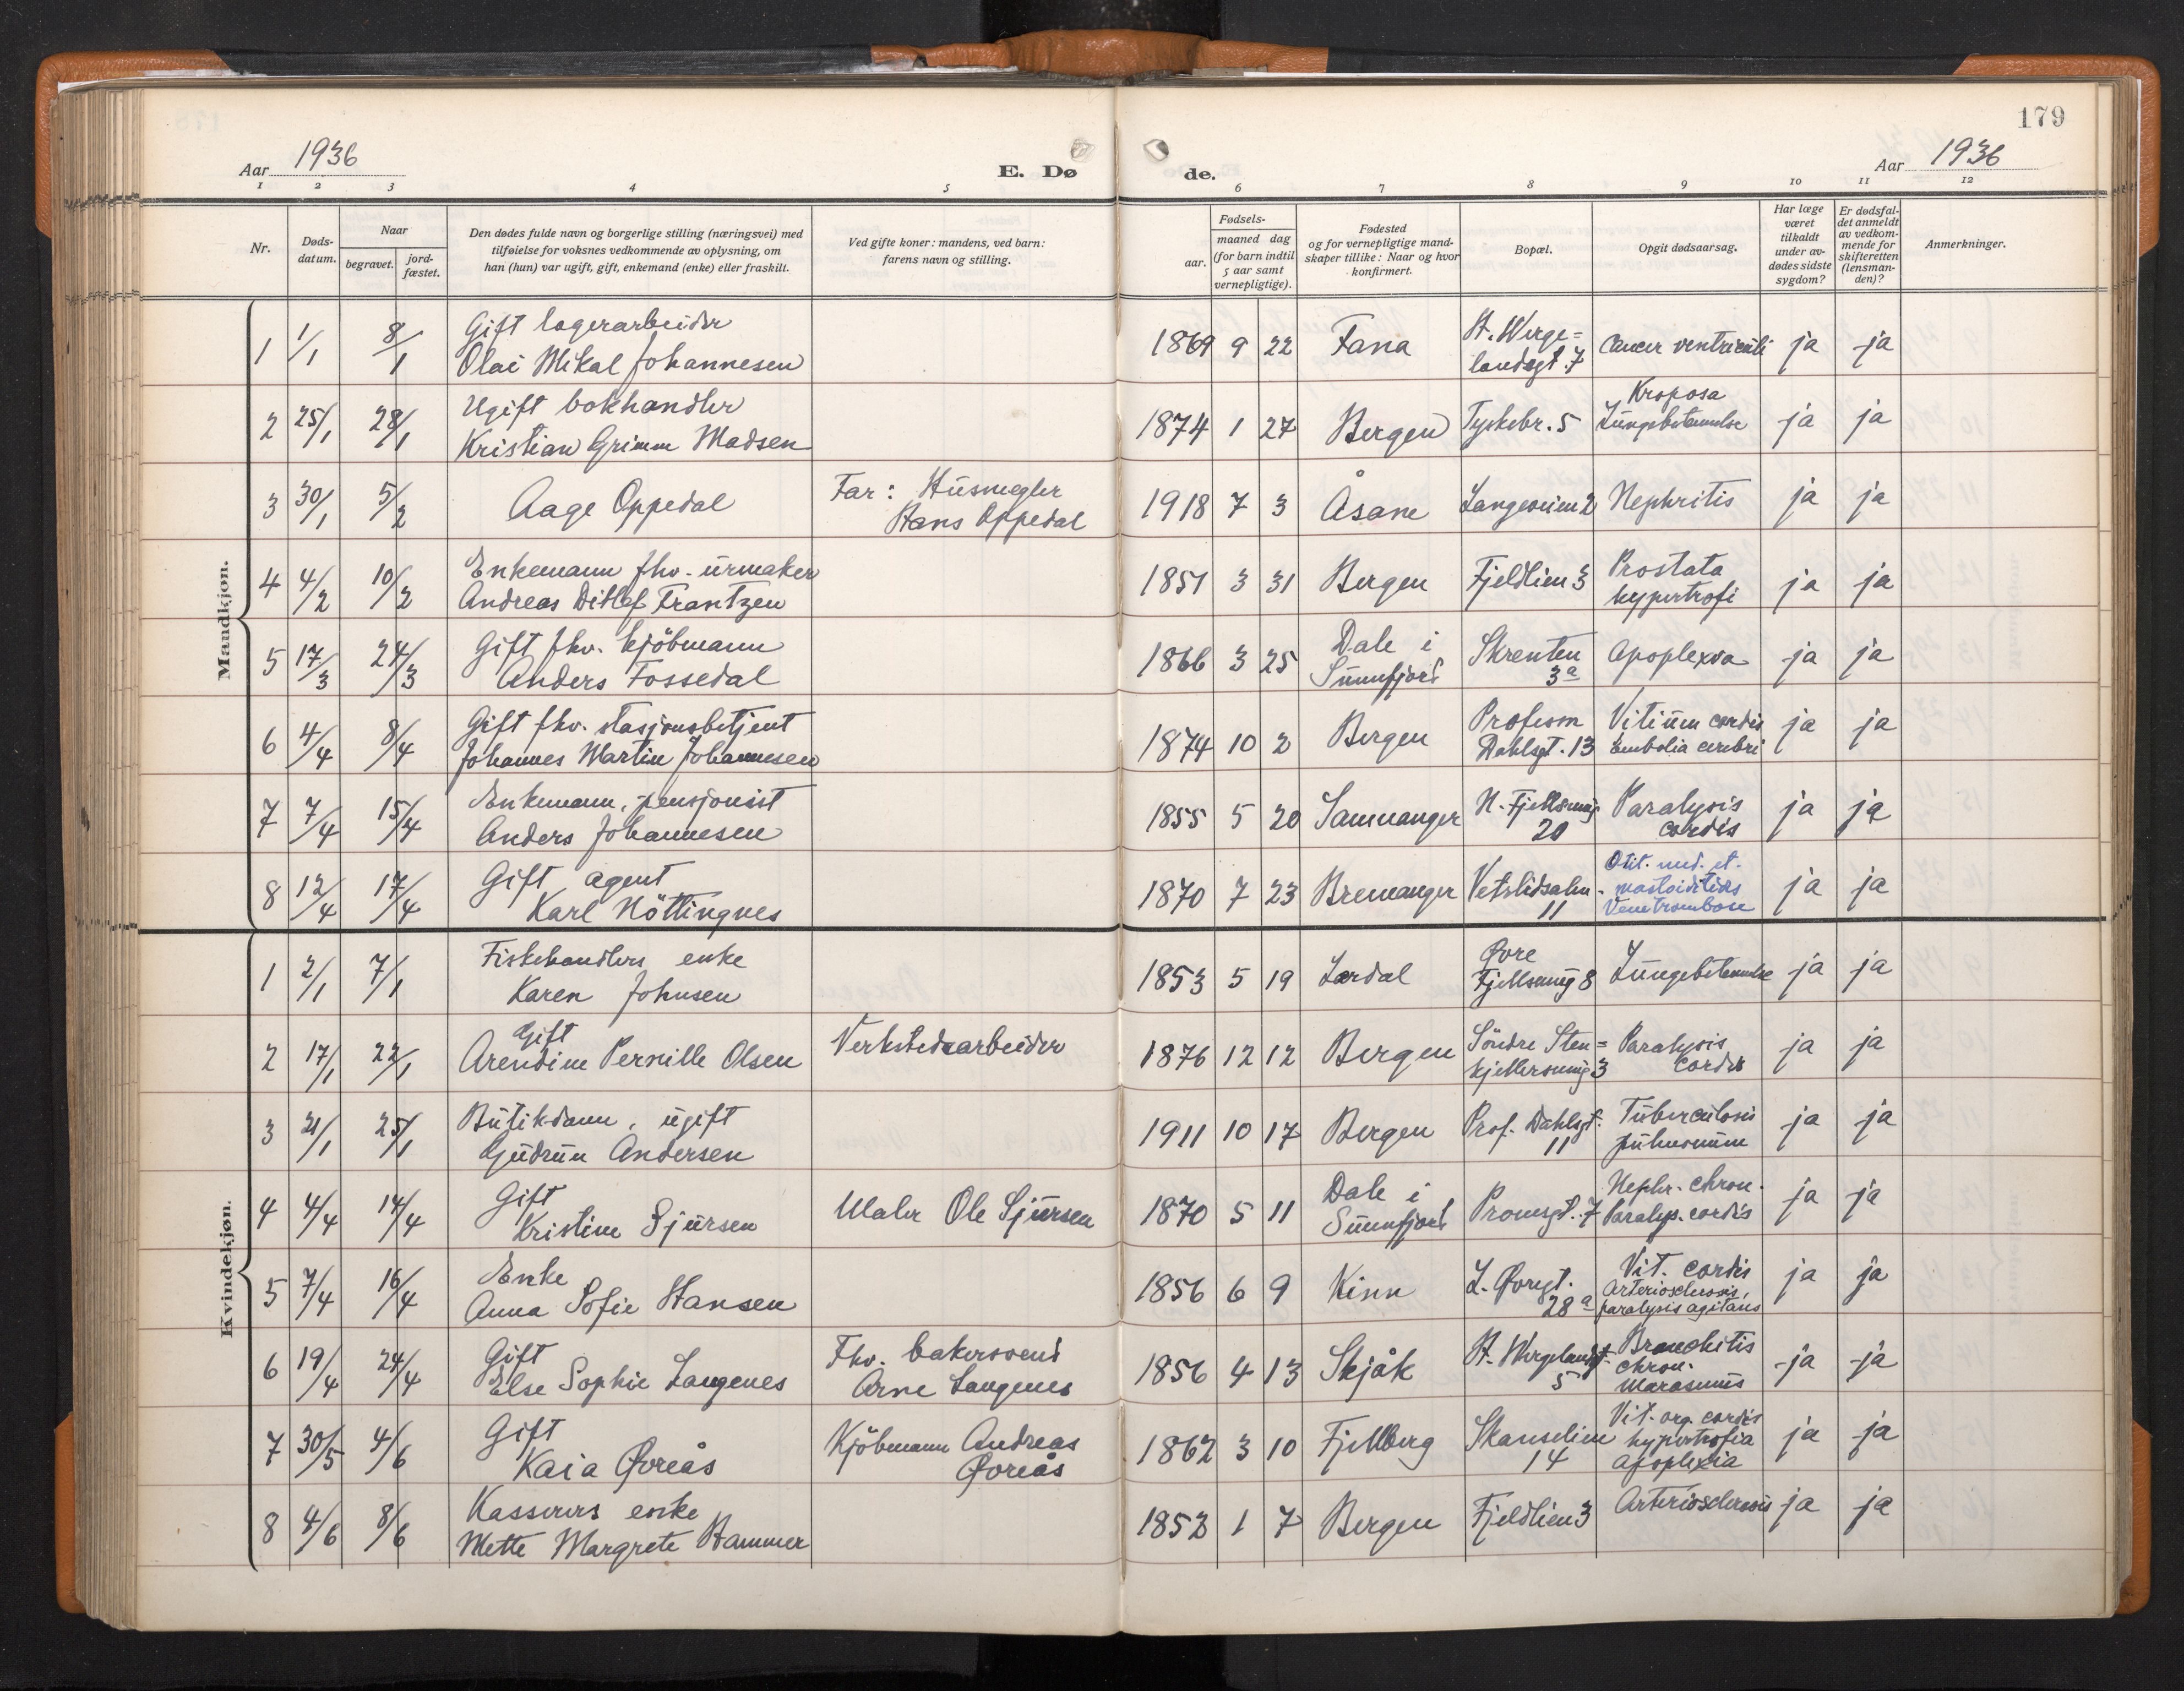 179
Aar 1936
E. Dø
de.
Aar 1936
1 2 3 4 5 6 7 8 9 10 11 12
Nr.
Døds-
datum.
Naar
begravet.
jord-
fæstet.
Den dødes fulde navn og borgerlige stilling (næringsvei) med
tilføielse for voksnes vedkommende av oplysning, om
han (hun) var ugift, gift, enkemand (enke) eller fraskilt.
Ved gifte koner: mandens, ved barn:
farens navn og stilling.
Fødsels-
aar.
maaned dag
(for barn indtil
5 aar samt
vernepligtige).
Fødested
og for vernepligtige mand-
skaper tillike: Naar og hvor
konfirmert.
Bopæl.
Opgit dødsaarsag.
Har læge
været
tilkaldt
under av-
dødes sidste
sygdom?
Er dødsfal-
det anmeldt
av vedkom-
mende for
skifteretten
(lensman-
den)?
Anmerkninger.
Mandkjøn.
1 1/1 8/1 Gift lagerarbeider
Olai Mikal Johannesen
1869 9 22 Fana H. Werge=
landsgt. 7 Cancer ventriculi ja ja
2 25/1 28/1 Ugift bokhandler
Kristian Grimm Madsen
1874 1 27 Bergen Tyskebr. 5 Kroposa
Lungebetennelse ja ja
3 30/1 5/2 Aage Oppedal Far: Husmegler
Hans Oppedal
1918 7 3 Åsane Langeveien 2 Nephritis ja ja
4 4/2 10/2 Enkemann fhv. urmaker
Andreas Ditlef Frantzen
1851 3 31 Bergen Fjeldlien 3 Prostata
hypertrofi ja ja
5 17/3 24/3 Gift fhv. kjöbmann
Anders Fossedal
1866 3 25 Dale i
Sunnfjord Skrenten
3a Apoplexia ja ja
6 4/4 8/4 Gift fhv. stasjonsbetjent
Johannes Martin Johannesen
1874 10 2 Bergen Professor
Dahlsgt. 13 Vitium cordis
Embolia cerebri ja ja
7 7/4 15/4 Enkemann, pensjonist
Anders Johannesen
1855 5 20 Samnanger N. Fjellsmug
20 Paralysis
cordis ja ja
8 12/4 17/4 Gift agent
Karl Nöttingnes
1870 7 23 Bremanger Vetrlidsalm.
11 Otit. med. et.
mastoiditis
Venetrombose ja ja
Kvindekjøn.
1 2/1 7/1 Fiskehandlers enke
Karen Johnsen
1853 5 19 Lærdal Øvre
Fjellsmug 8 Lungebetennelse ja ja
2 17/1 22/1 Gift
Arendine Pernille Olsen Verkstedsarbeider
1876 12 12 Bergen Söndre Sten=
kjellersmug 3 Paralysis
cordis ja ja
3 21/1 25/1 Butikdame, ugift
Gudrun Andersen
1911 10 17 Bergen Prof. Dahlsgt.
11 Tuberculosis
pulmonum ja ja
4 4/4 14/4 Gift
Kristine Sjursen Maler Ole Sjursen
1870 5 11 Dale i
Sunnfjord Promsgt. 7 Nephr. chron.
Paralys. cordis ja ja
5 7/4 16/4 Enke
Anna Sofie Hansen
1856 6 9 Kinn L. Øvregt.
28a Vit. cordis
Arteriosclerosis,
paralysis agitans ja ja
6 19/4 24/4 Gift
Else Sophie Langenes Fhv. bakersvend
Arne Langenes
1856 4 13 Skjåk H. Wergelandsgt.
5 Bronchitis
chron.
Marasmus ja ja
7 30/5 4/6 Gift
Kaia Øvreås Kjöbmann Andreas
Øvreås
1862 3 10 Fjellberg Skanselien
14 Vit. org. cordis
hypertrofia
apoplexia ja ja
8 4/6 8/6 Kasserers enke
Mette Margrete Hammer
1852 1 7 Bergen Fjeldlien 3 Arteriosclerosis ja ja